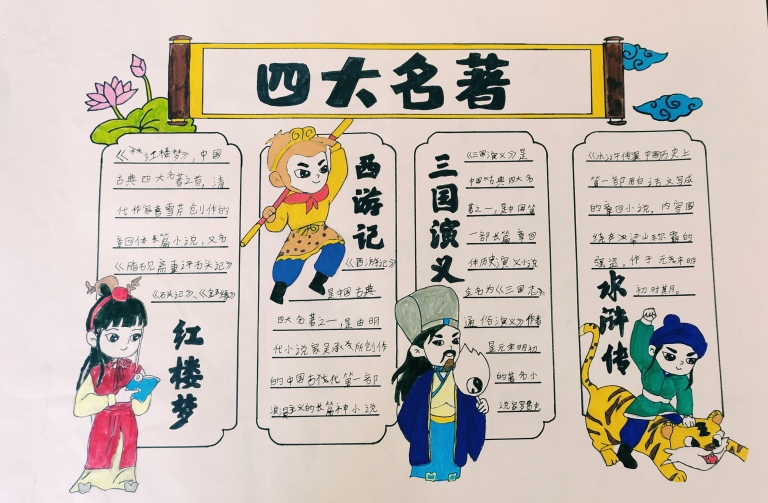 四大名著
《红楼梦》,中国
古典四大名著之首,清
代作家曹雪芹创作的
章回体长篇小说,又名
《脂砚斋重评石头记》
《石头记》、《金玉缘》
红楼梦
西游记
《西游记》
是中国古典
四大名著之一,是由明
代小说家吴承恩所创作
的中国古代第一部
浪漫主义的长篇神小说
三国演义
《三国演义》是
中国古典四大名
著之一,是中国第
一部长篇章回
体历史演义小说
全名为《三国志
通俗演义》作者
是元末明初
的著名小
说家罗贯中
《水浒传》是中国历史上
第一部用白话文写成
的章回小说,内容围
绕
梁山
的
强盗,作于元末明
初时其月。
水浒传